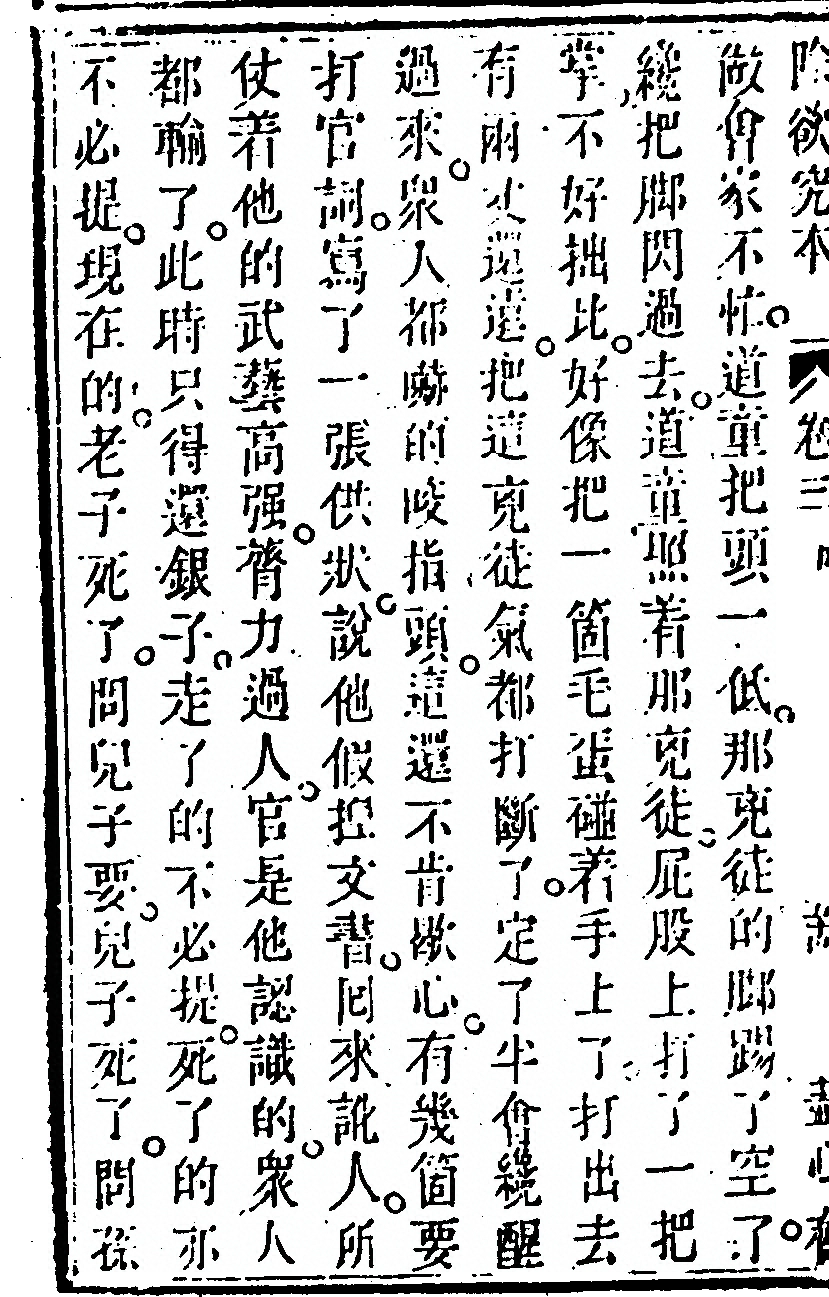 除欲究本 卷三
做會家不忙。道童把頭一低。那兇徒的脚踢了空了。
纔把脚閃過去。道童照着那兇徒。屁股上打了一把
掌不好拙比。好像把一箇毛蛋碰着手上了。打出去
有兩丈還遠。把這兇徒氣都打斷了。定了半會纔醒
過來。衆人都嚇的咬指頭。這還不肯歇心。有幾箇要
打官詞。寫了一張供狀。說他假揑文書。囘來訛人。所
仗着他的武藝高强。膂力過人。官是他認識的。衆人
都輸了。此時只得還銀子。走了的不必提。死了的亦
不必提。現在的。老子死了。問兒子要。兒子死了。問孫